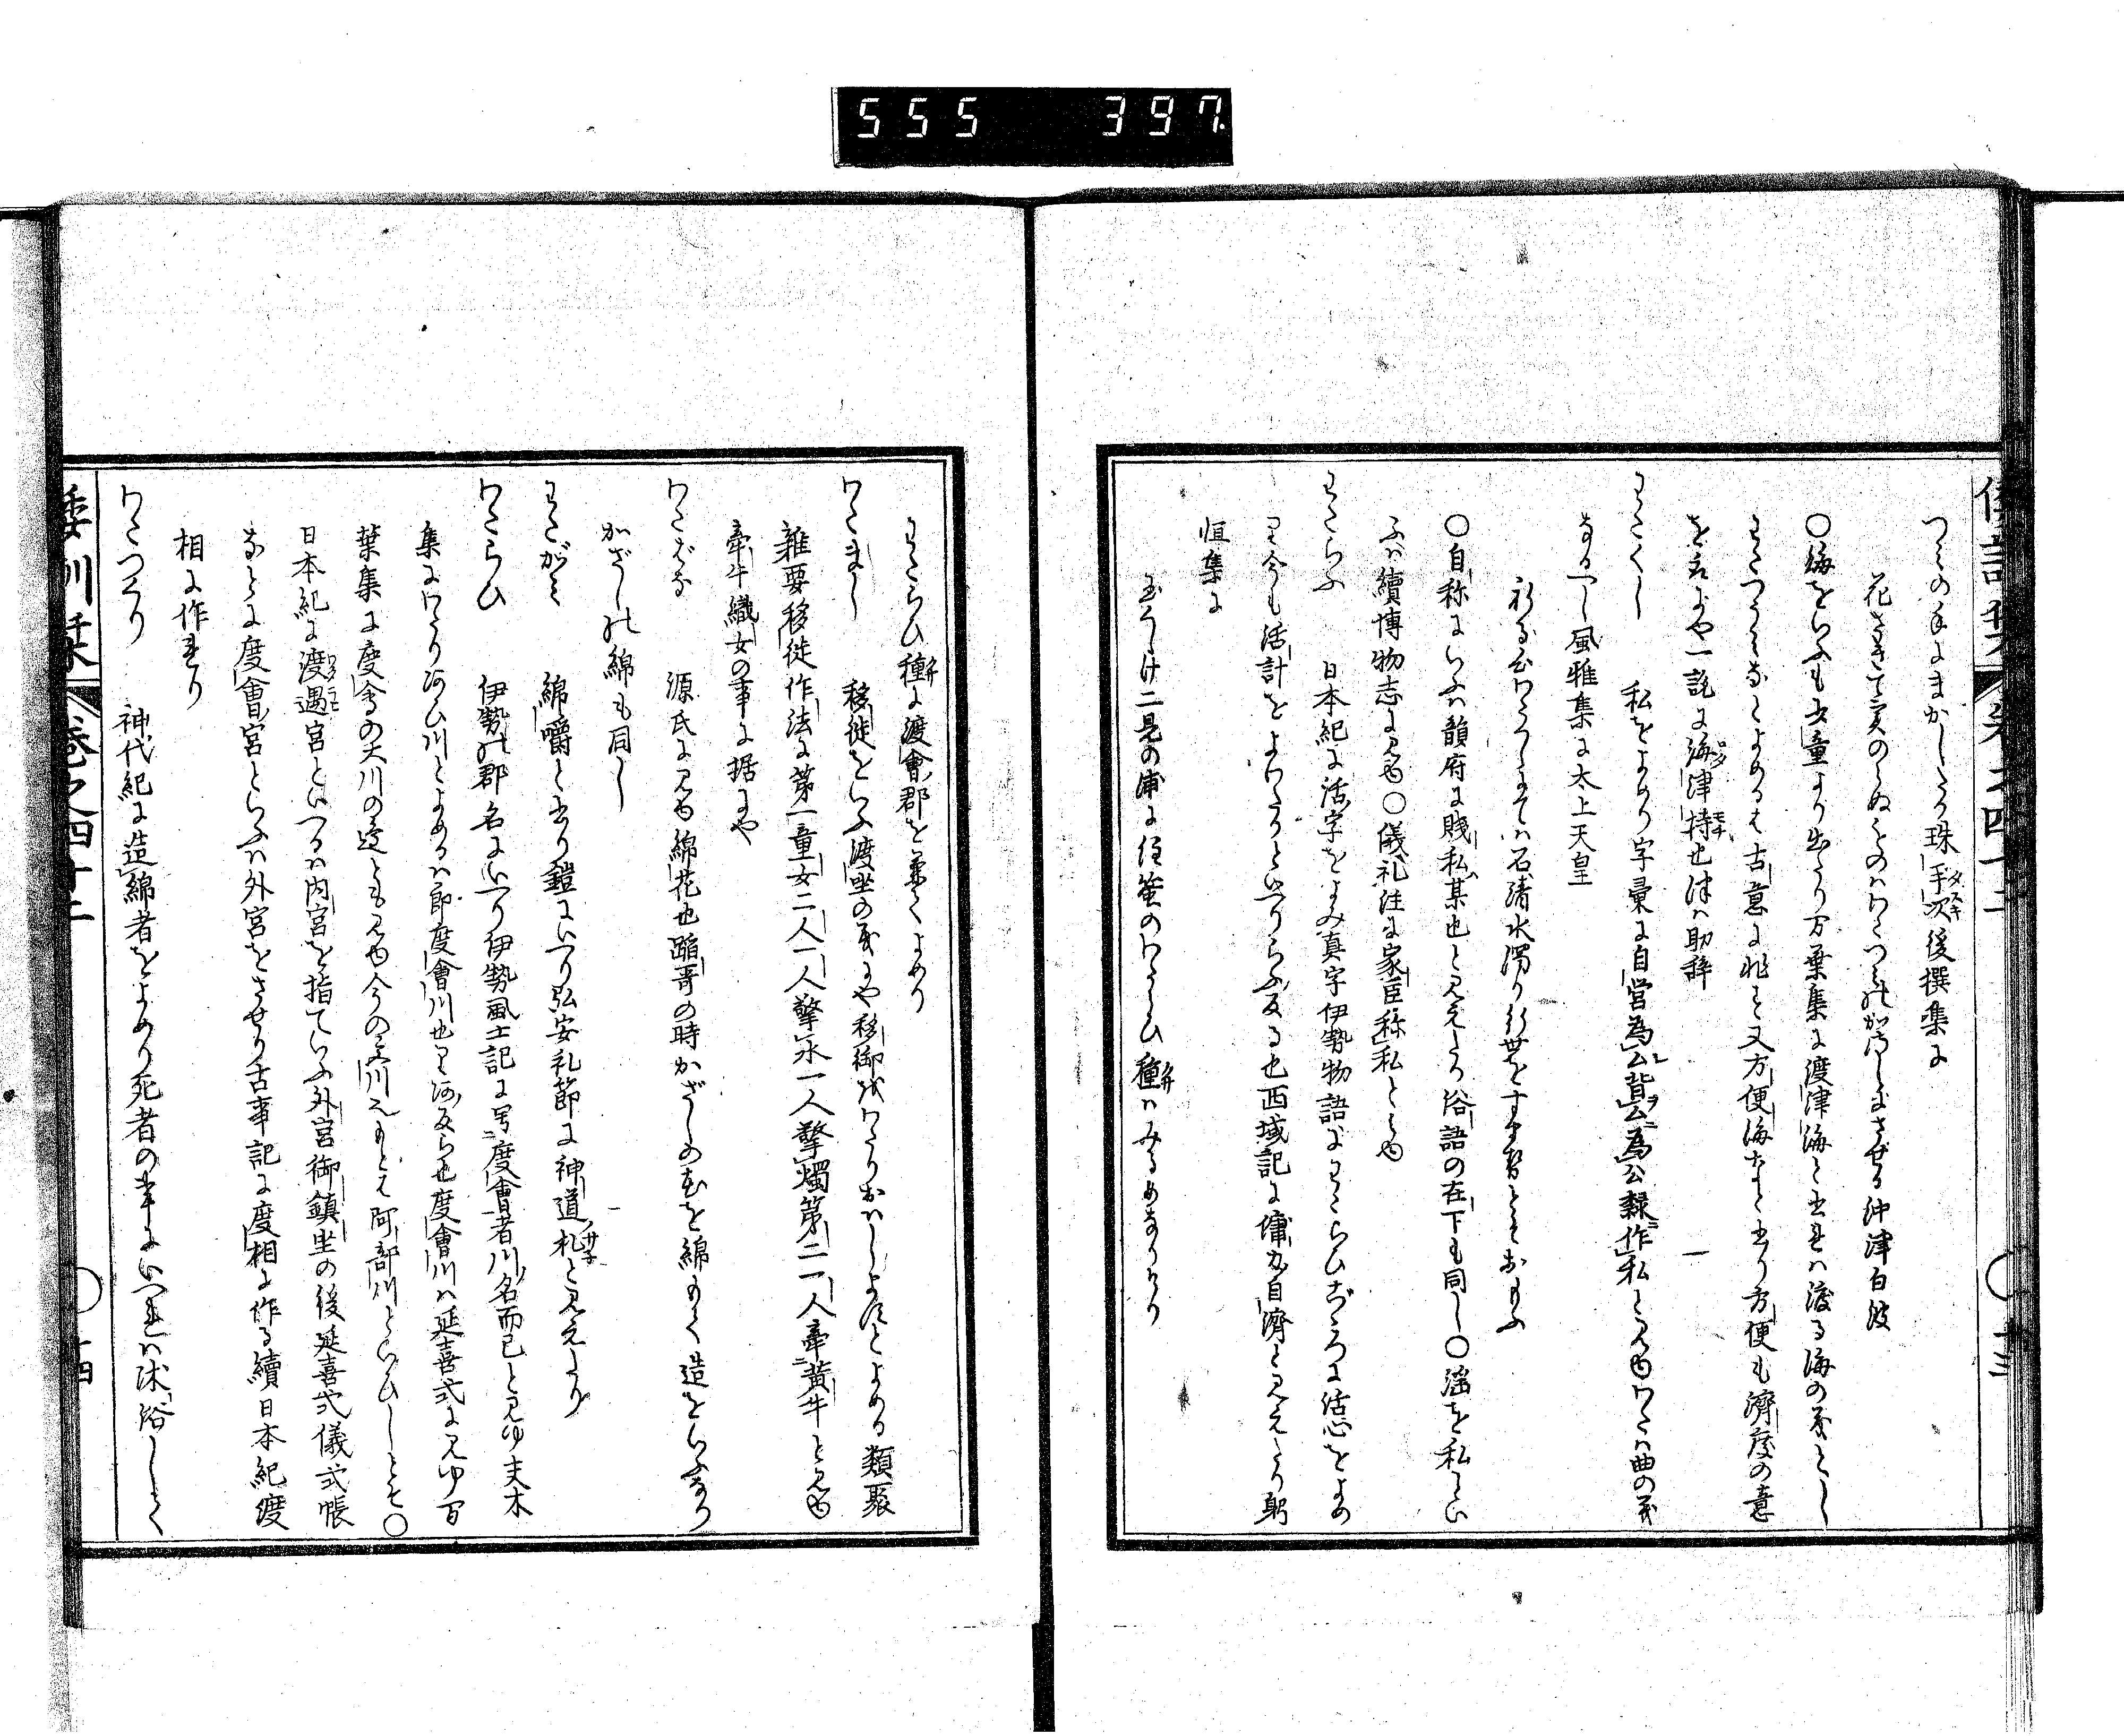 555 397.
つみの手にまかしたる珠手次後撰集に
花さきて実のらぬものはわたつ海のかさしにさせる沖津白波
○海をいふも女童より出たり万葉集に渡津海と書れは渡る海の義とし
わたつうみなとよめるは古意に非す又方便海なと書り方便も済度の意
を云にや一説に海津持也津は助辞
わたくし 私をよめり字彙に自営為公背公為公隷作私と見ゆわたは曲の義
なるへし風雅集に太上天皇
石清水濁り
○自称にいふは韻府に賎私某也と見えたり俗語の在下も同し○淫を私とい
ふは續博物志に見ゆ○儀礼注に家臣称私とみゆ
わたらふ 日本紀に活字をよみ真字伊勢物語にわたらひこゝろに活心をよめ
り今も活計をよわたりといへりらふ反る也西域記に傭力自濟と見えたり躬
恒集に
玉くしけ二見の浦に住蜑のわたらひ種はみるめなりけり
わたらひ種に渡會郡を兼てよめり
わたまし 移徙をいふ渡坐の義にや移御はわたりおはしよそとよめる類聚
雑要移徙作法に第一童女二人一人擎水一人擎燭第二一人牽黄牛と見ゆ
牽牛織女の事に据にや
わたばな 源氏に見ゆ綿花也踏哥の時かざしの花を綿もて造をいふなり
かざしの綿も同し
わたがみ 綿嚼と書り鎧にいへり弘安礼節に神道札と見えたり
わたらひ 伊勢の郡名にいへり伊勢風土記に号度會者川名而已と見ゆ夫木
集にわたりあひ川とよめるは即度會川也りあ反ら也度會川は延喜式に見ゆ百
葉集に度會の大川の邊とも見ゆ今の宮川也もとは阿部川といひしとそ○
日本紀に渡遇宮といへるは内宮を指ていふ外宮御鎮坐の後延喜式儀式帳
なとに度會宮といふは外宮をさせり古事記に度相に作る續日本紀度
相に作れり
わたつくり 神代紀に造綿者をよめり死者の事にいへれは沐浴しして
倭訓栞 巻之四十二 ○十三
倭訓栞 巻之四十二 ○十四